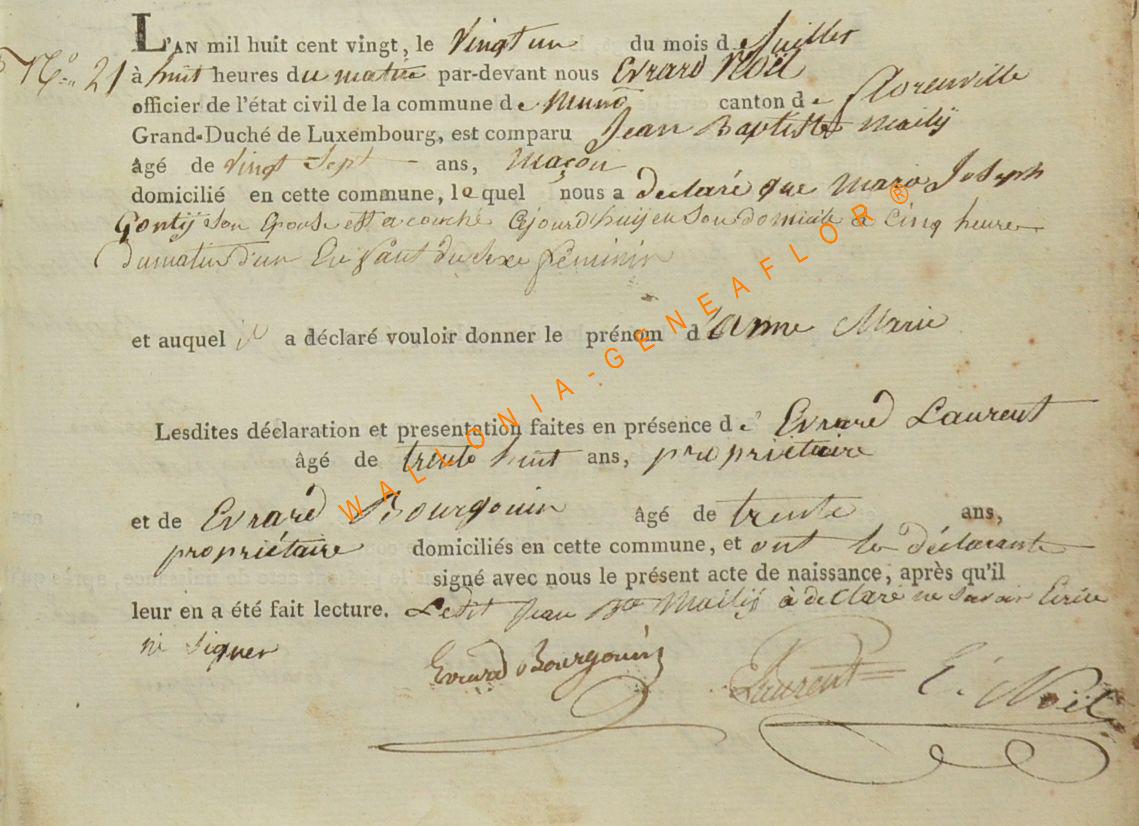 L'AN mil huit cent vingt, le vingt un du mois de Juillet
N.o 21 à huit heures du matin par-devant nous Evrard Noël
officier de l'état civil de la commune de Muno canton de Florenville
Grand-Duché de Luxembourg, est comparu Jean Baptiste Mailij
âgé de vingt Sept ans, Maçon
domicilié en cette commune, lequel nous a declaré que Marie Joseph
Gontij Son Epouse est acouché Cejourd'huij en Son domicile a Cinq heure
dumatin d'un Enfant du Sexe féminin
et auquel il a déclaré vouloir donner le prénom d'anne Marie
Lesdites déclaration et presentation faites en présence de Evrard Laurent
âgé de trente huit ans, propriétaire
et de Evrard Bourgouin âgé de trente ans,
propriétaire domiciliés en cette commune, et ont les déclarants
signé avec nous le présent acte de naissance, après qu'il
leur en a été fait lecture. Ledit Jean Bte Mailij à declaré ne Savoir Ecrire
ni Signer
Evrard Bourgouin Laurent E. Noël
WALLONIA-GENEAFLOR ®